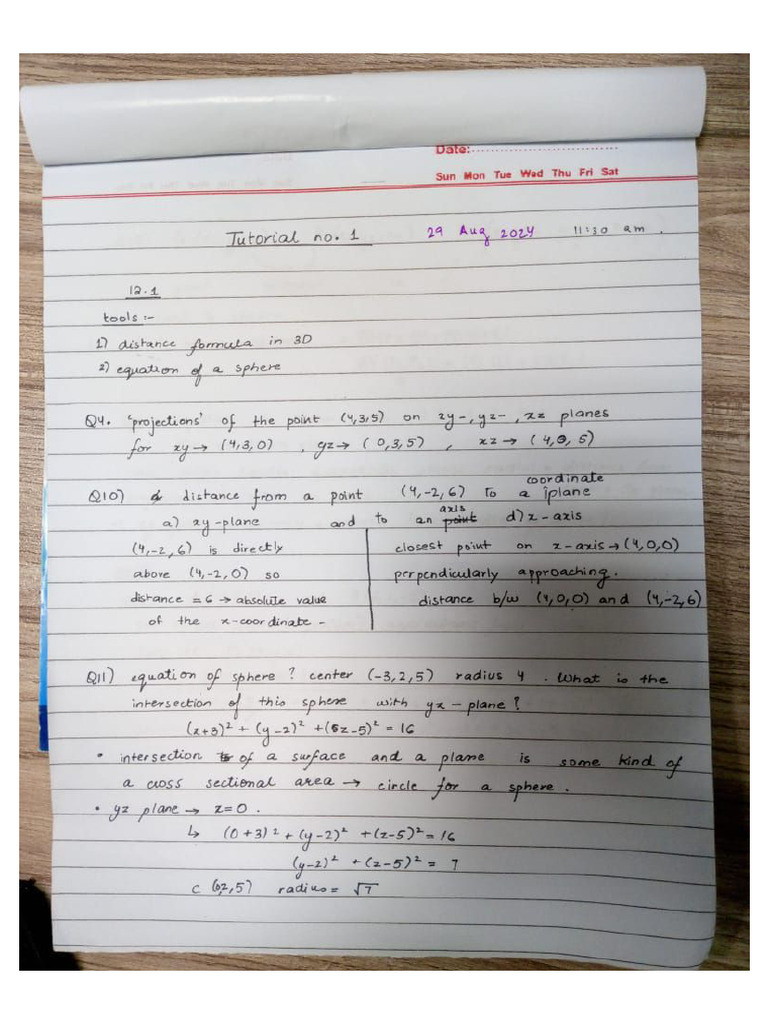 Date:
Sun Mon Tue Wed Thu Fri Sat
Tutorial no. 1 29 Aug 2024 11:30 am.
12.1
tools :-
1) distance formula in 3D
2) equation of a sphere
Q4. 'projections' of the point (4,3,5) on xy-, yz-, xz planes
for xy → (4,3,0) , yz → (0,3,5) , xz → (4,0,5)
Q10) distance from a point (4,-2,6) to a coordinate plane
a) xy-plane and to an axis d) x-axis
(4,-2,6) is directly
above (4,-2,0) so
distance = 6 → absolute value
of the x-coordinate -
closest point on x-axis → (4,0,0)
perpendicularly approaching.
distance b/w (4,0,0) and (4,-2,6)
Q11) equation of sphere ? center (-3,2,5) radius 4 . What is the
intersection of this sphere with yz-plane ?
(x+3)² + (y-2)² + (z-5)² = 16
• intersection of a surface and a plane is some kind of
a cross sectional area → circle for a sphere.
• yz plane → x=0 .
↳ (0+3)² + (y-2)² + (z-5)² = 16
(y-2)² + (z-5)² = 7
c (0,2,5) radius = √7